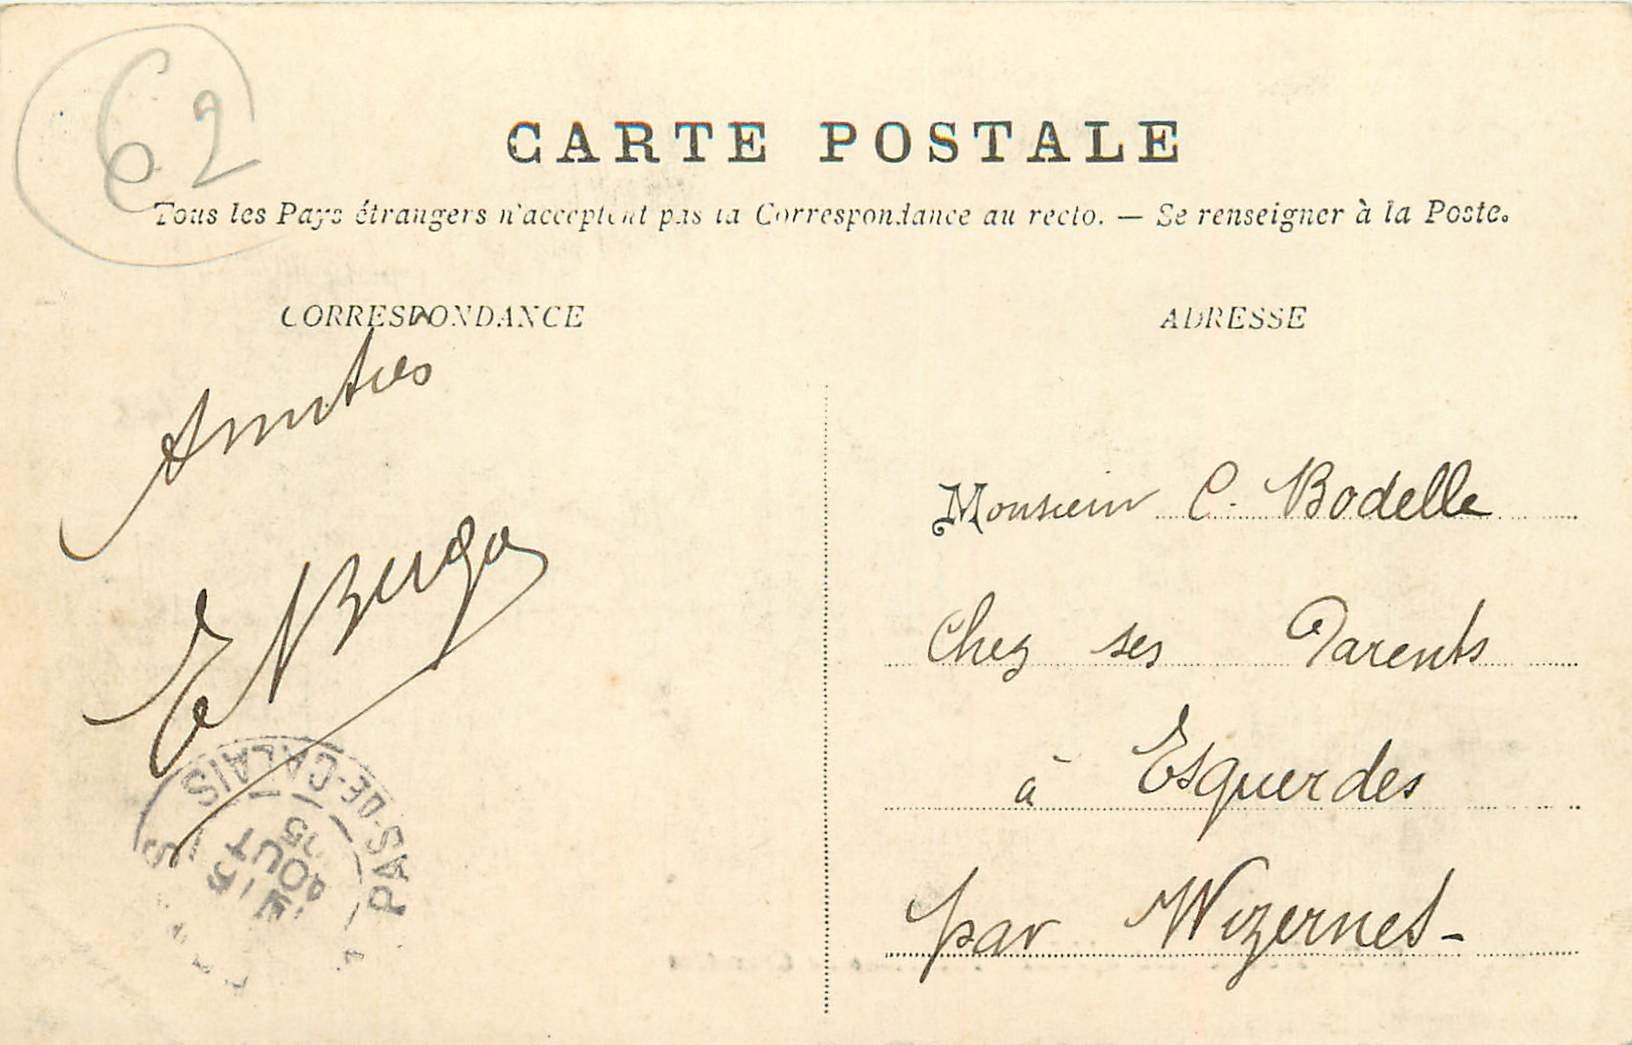 62
CARTE POSTALE
Tous les Pays étrangers n'acceptent pas la Correspondance au recto. — Se renseigner à la Poste.
CORRESPONDANCE
ADRESSE
Amitiés
E
Monsieur C. Bodelle
Chez ses Parents
à Esquerdes
par Wizernes -
PAS-DE-CALAIS
AOUT
05